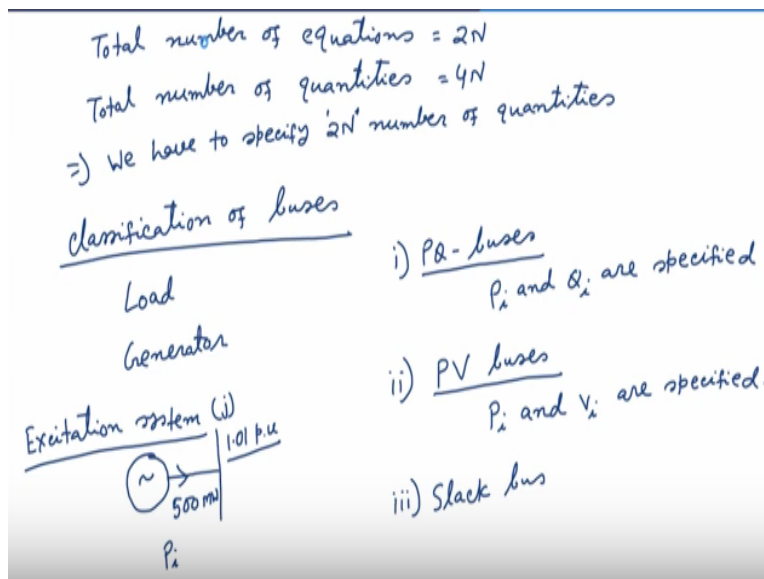 Total number of equations = 2N
Total number of quantities = 4N
⇒) We have to specify '2N' number of quantities
classification of buses
Load
Generator
Excitation system (j)
1.01 p.u
~
500 MW
Pi
i) PQ - buses
Pi and Qi are specified
ii) PV buses
Pi and Vi are specified.
iii) Slack bus